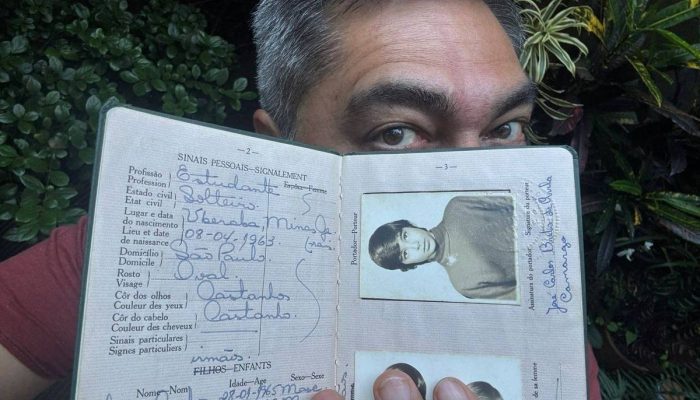 — 2 —
SINAIS PESSOAIS—SIGNALEMENT
Profissão Profession Estudante Espôsa—Femme
Estado civil Etat civil Solteiro
Lugar e data do nascimento Uberaba, Minas Ge-
rais
Lieu et date de naissance 08-04-1963
Domicílio Domicile São Paulo
Rosto Visage Oval
Côr dos olhos Couleur des yeux Castanhos
Côr do cabelo Couleur des cheveux Castanho.
Sinais particulares
Signes particuliers
irmãos.
FILHOS—ENFANTS
Nome—Nom Idade—Age Sexo—Sexe
28-01-1965 Masc
— 3 —
Portador—Porteur
Assinatura do portador. Signature du porteur.
José Carlos
Camargo
de sa femme